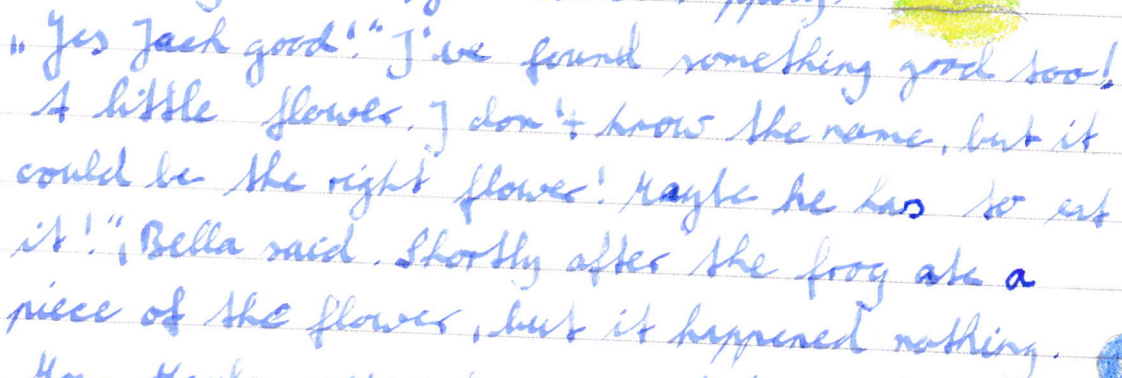 „Yes Jack good!“ I've found something good too!
A little flower. I don't know the name, but it
could be the right flower! Maybe he has to eat
it!“, Bella said. Shortly after the frog ate a
piece of the flower, but it happened nothing.